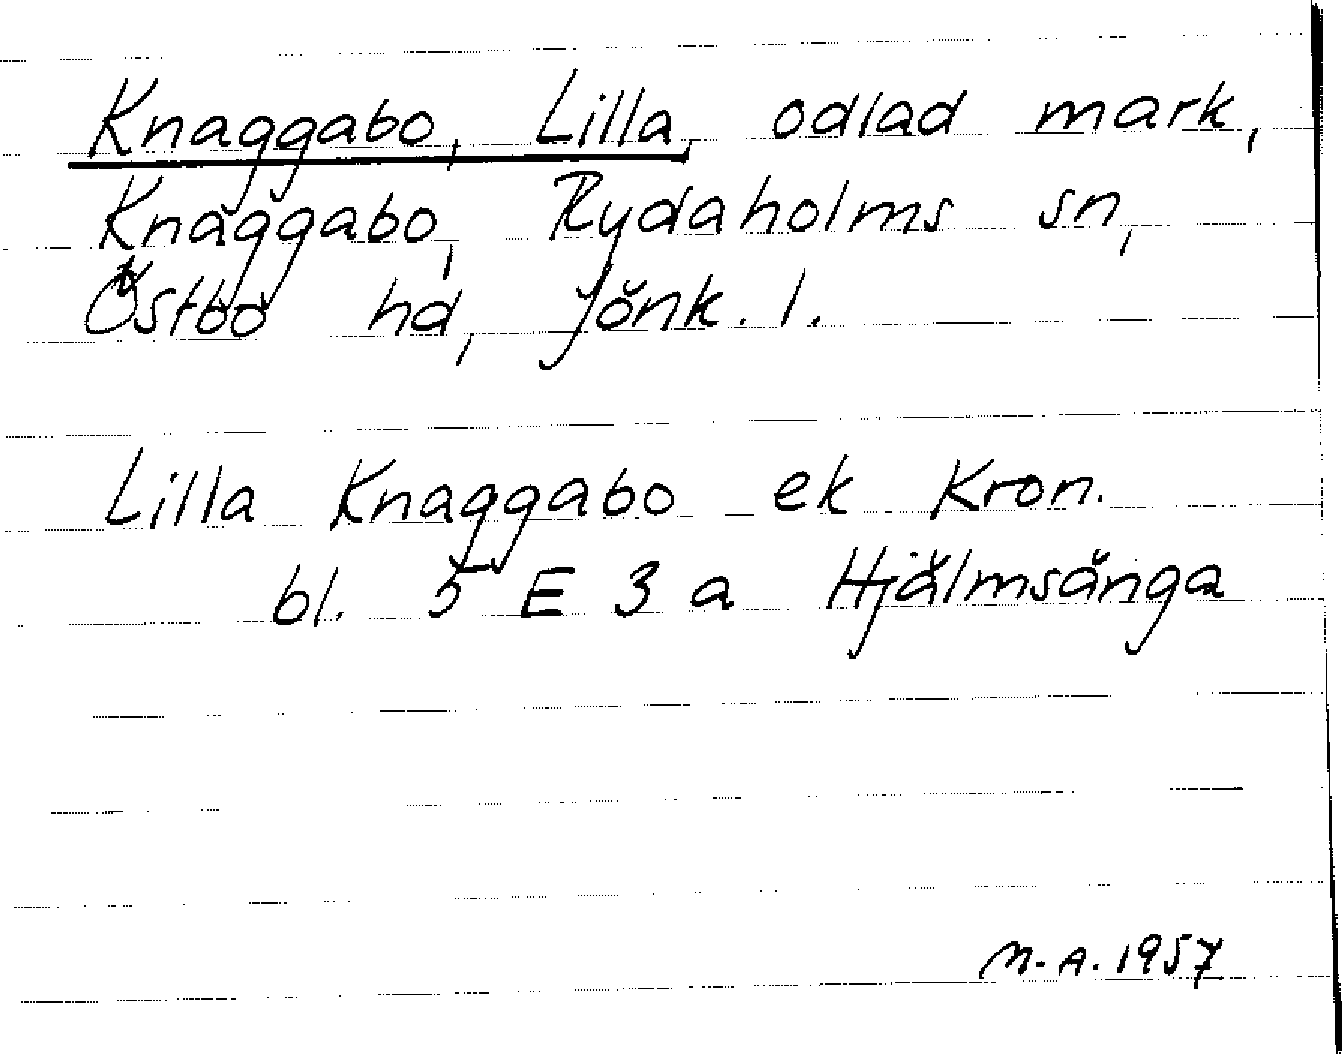 Knaggabo, Lilla, odlad mark,
Knaggabo, Rydaholms sn,
Östbo hd, Jönk. l.
Lilla Knaggabo ek Kron.
bl. 5 E 3 a Hjälmsänga
M.A. 1957